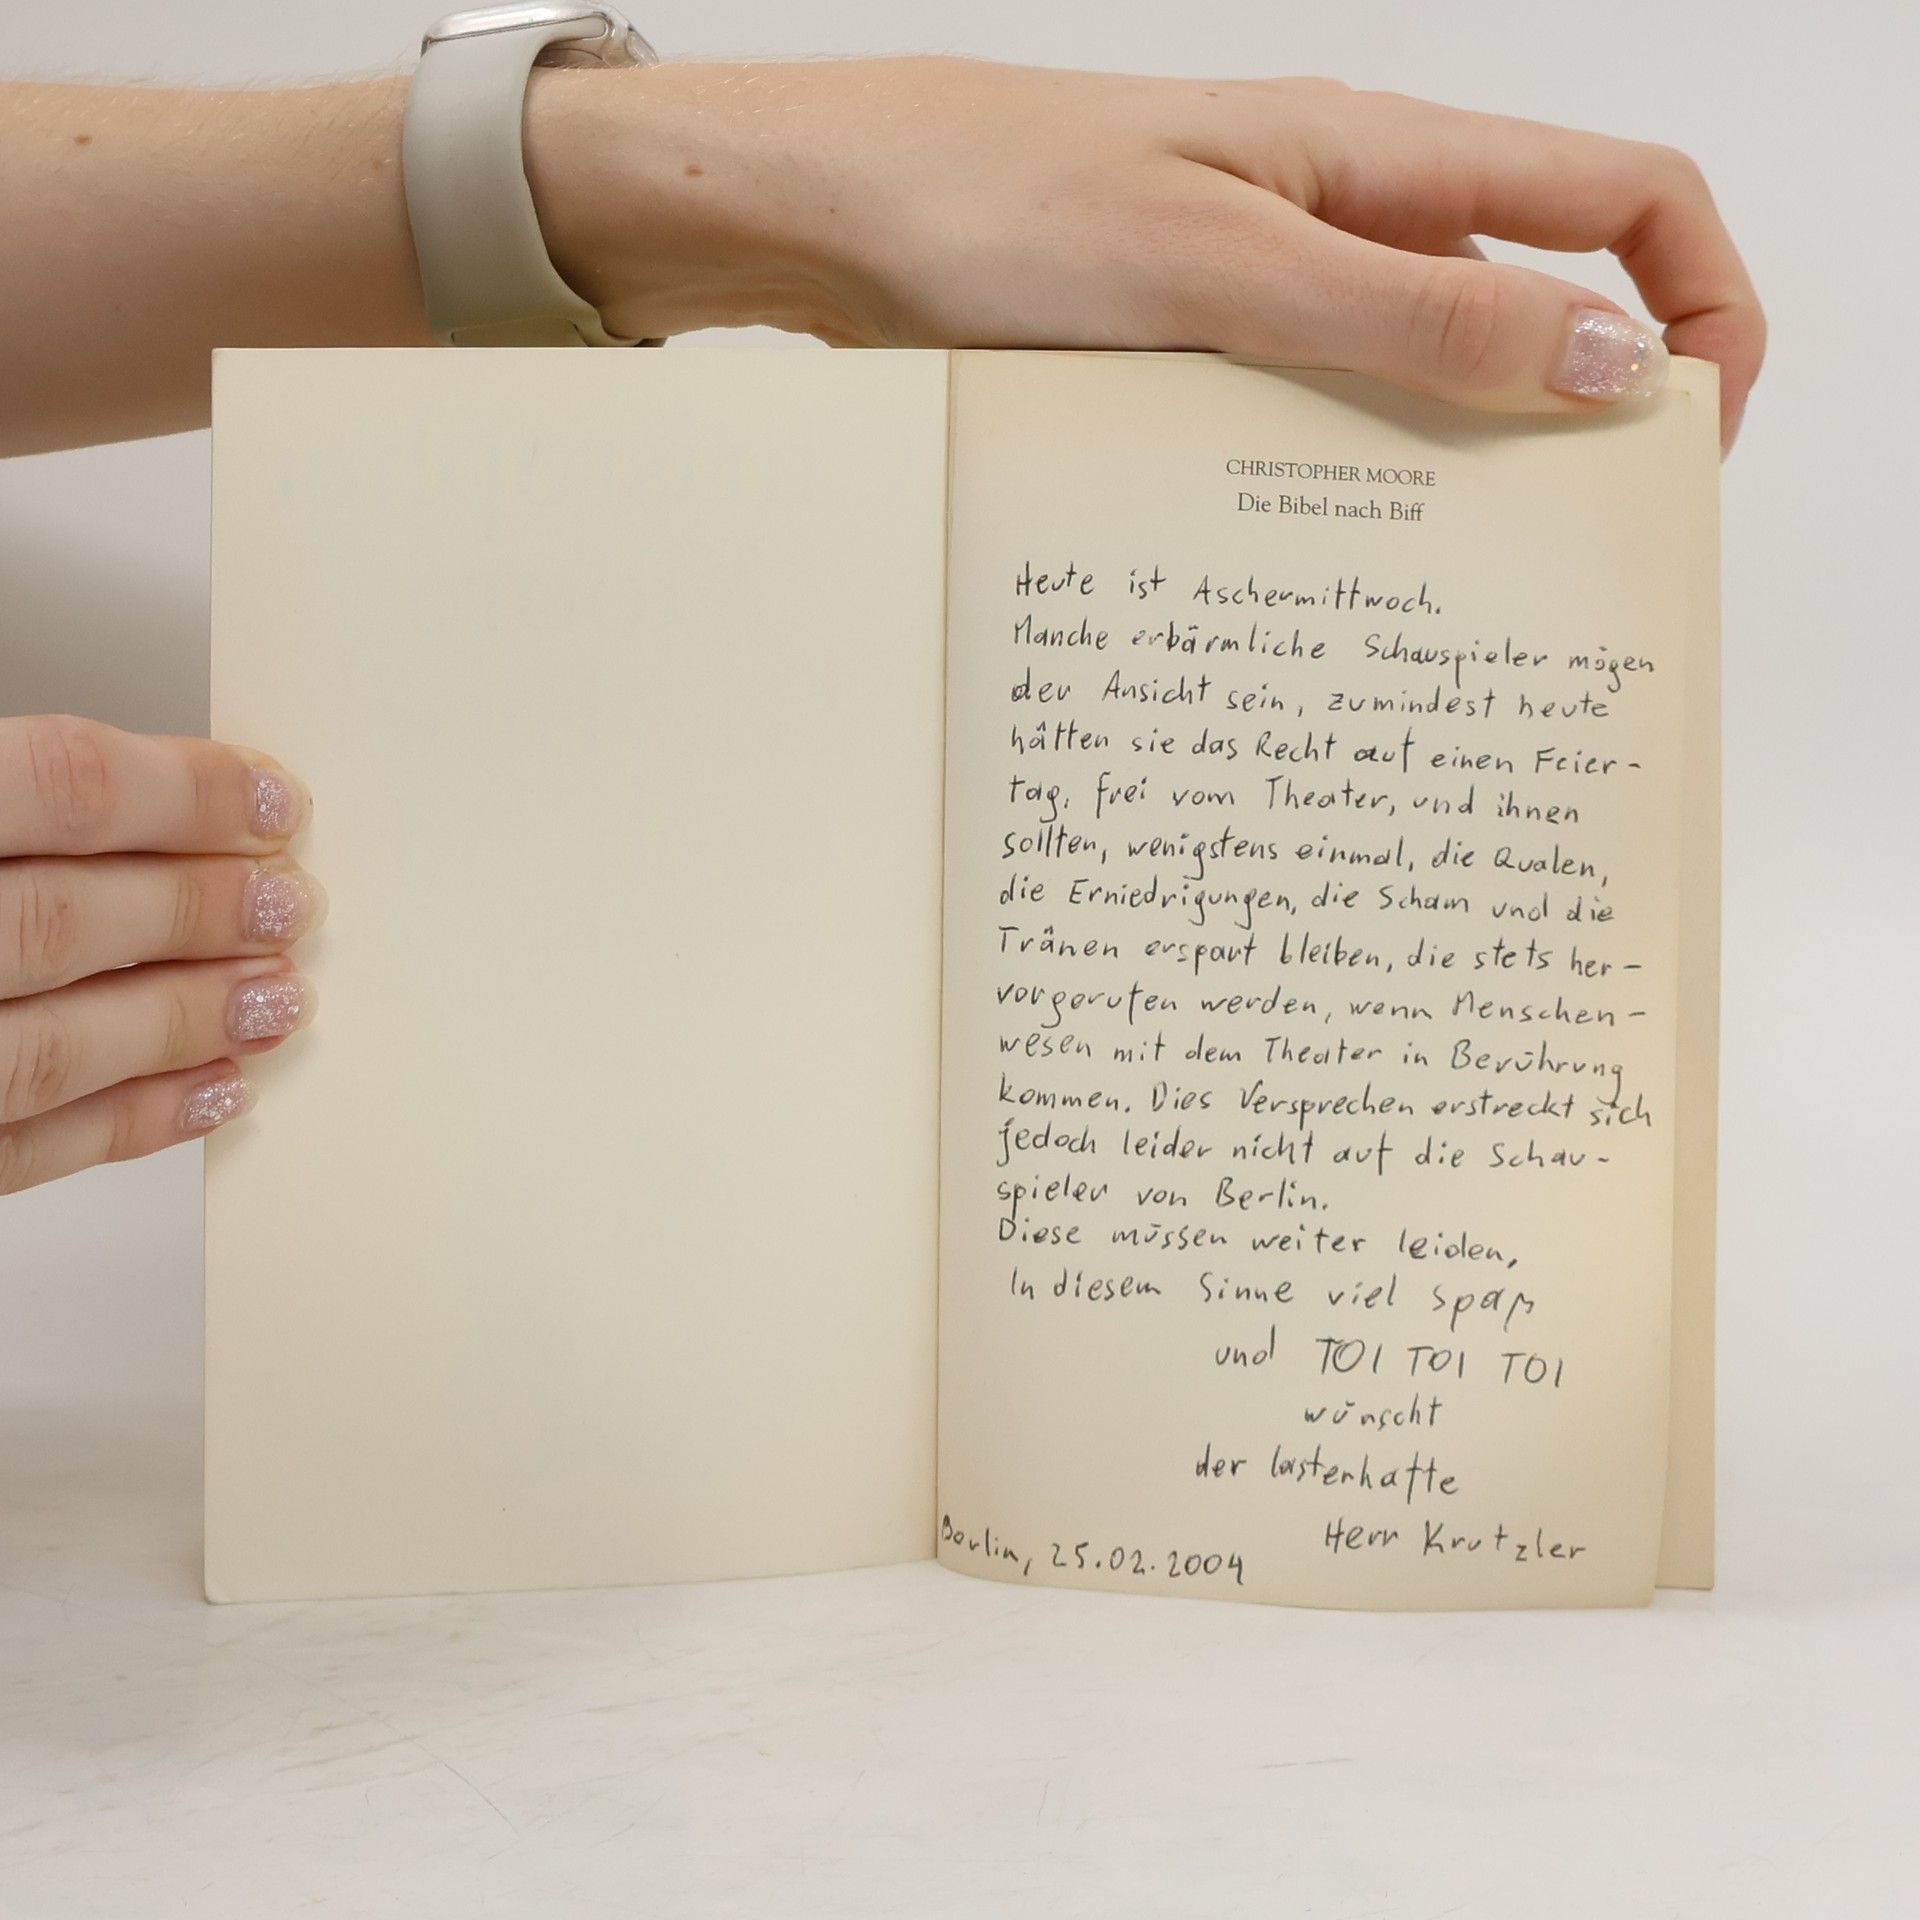 CHRISTOPHER MOORE
Die Bibel nach Biff
Heute ist Aschermittwoch.
Manche erbärmliche Schauspieler mögen
der Ansicht sein, zumindest heute
hätten sie das Recht auf einen Feier-
tag, frei vom Theater, und ihnen
sollten, wenigstens einmal, die Qualen,
die Erniedrigungen, die Scham und die
Tränen erspart bleiben, die stets her-
vorgerufen werden, wenn Menschen-
wesen mit dem Theater in Berührung
kommen. Dies Versprechen erstreckt sich
jedoch leider nicht auf die Schau-
spieler von Berlin.
Diese müssen weiter leiden,
In diesem Sinne viel Spaß
und TOI TOI TOI
wünscht
der lasterhafte
Herr Krutzler
Berlin, 25.02.2004